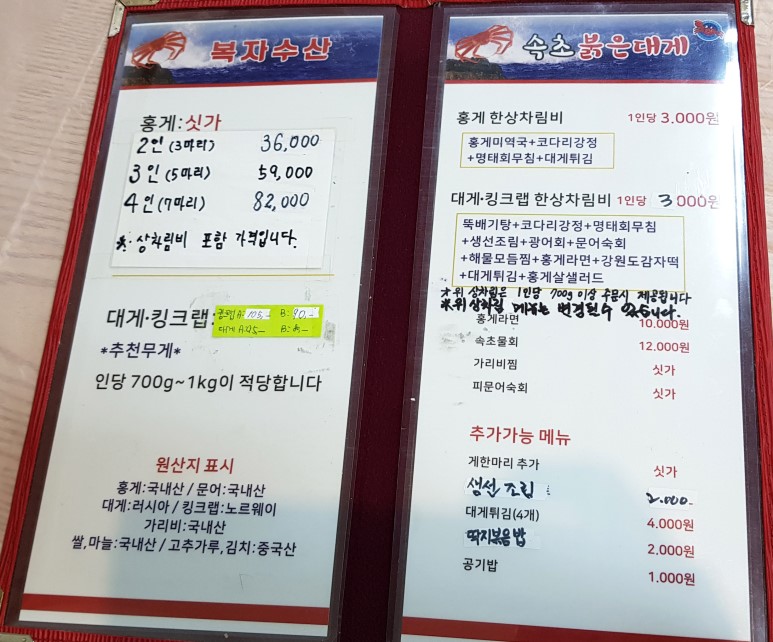 복자수산
홍게:싯가
2인(3마리) 36,000
3인(5마리) 59,000
4인(7마리) 82,000
※. 상차림비 포함 가격입니다.
대게·킹크랩:
킹크랩 A: 105,- B: 90,-
대게 A: 125,-
*추천무게*
인당 700g~1kg이 적당합니다
원산지 표시
홍게:국내산 / 문어:국내산
대게:러시아 / 킹크랩:노르웨이
가리비:국내산
쌀,마늘:국내산 / 고추가루,김치:중국산
속초붉은대게
홍게 한상차림비 1인당 3.000원
홍게미역국+코다리강정
+명태회무침+대게튀김
대게·킹크랩 한상차림비 1인당 3 000원
뚝배기탕+코다리강정+명태회무침
+생선조림+광어회+문어숙회
+해물모듬찜+홍게라면+강원도감자떡
+대게튀김+홍게살샐러드
※위 상차림은 1인당 700g 이상 주문시 제공됩니다
※위 상차림 메뉴는 변경될수 있습니다.
홍게라면 10.000원
속초물회 12.000원
가리비찜 싯가
피문어숙회 싯가
추가가능 메뉴
게한마리 추가 싯가
생선 조림 2.000.
대게튀김(4개) 4.000원
딱지볶음밥 2.000원
공기밥 1.000원